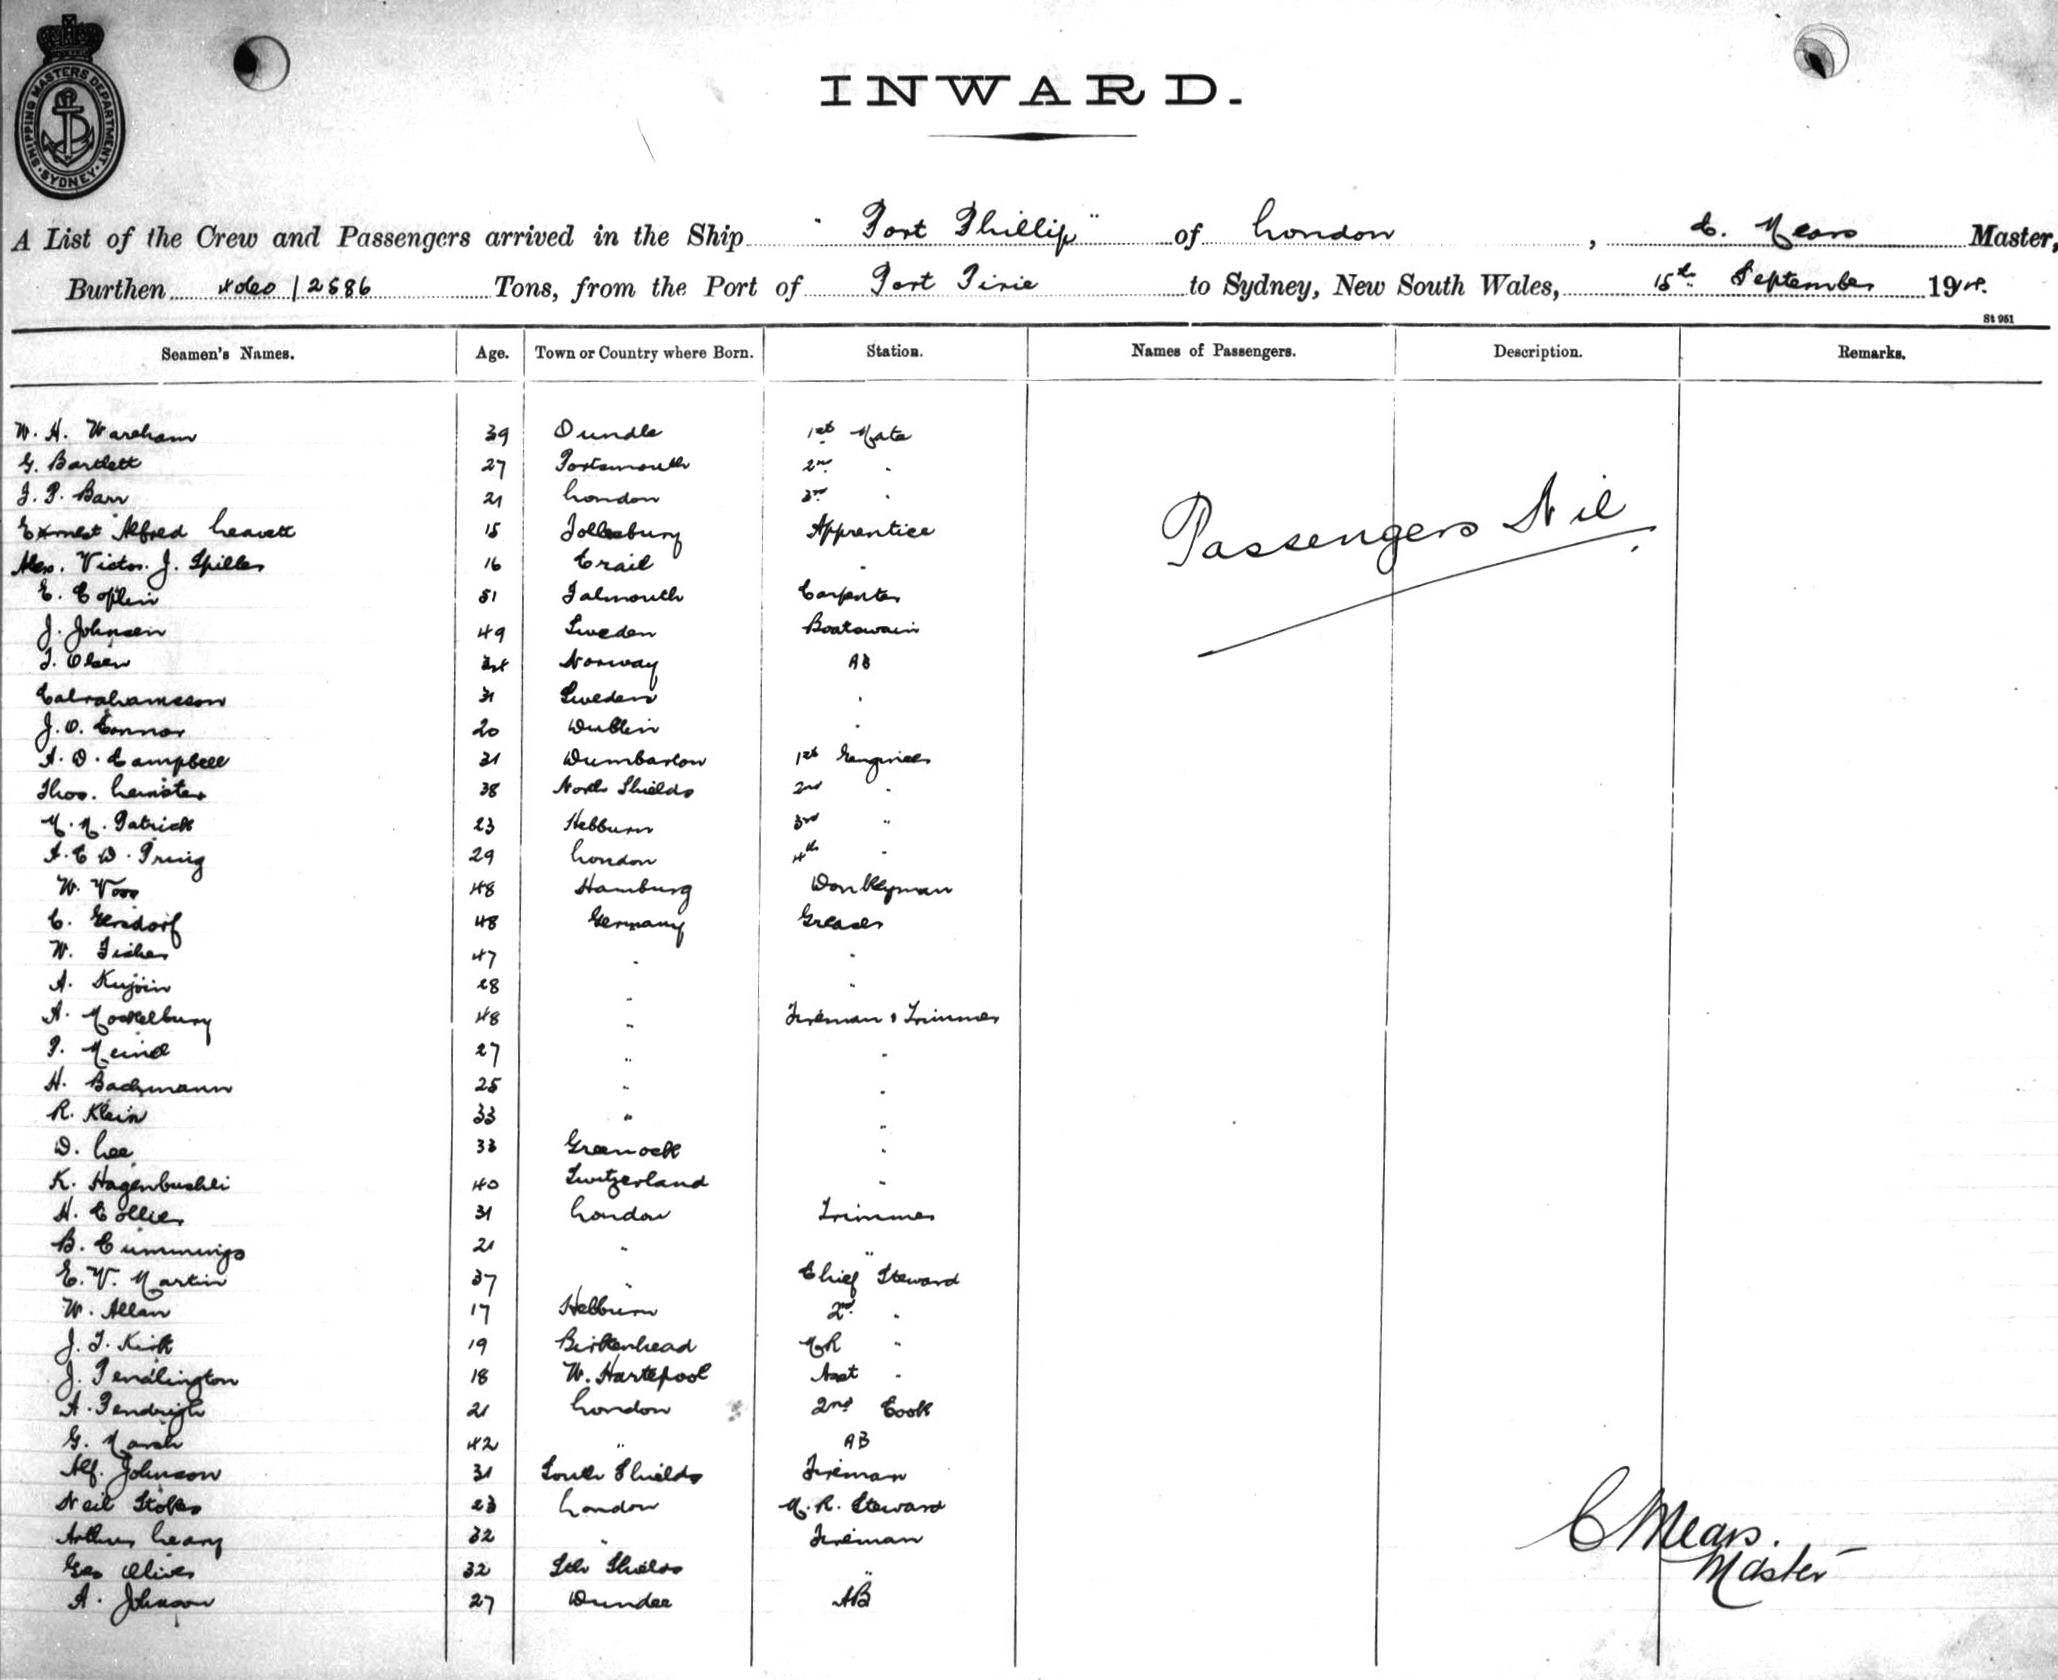 SHIPPING MASTERS DEPARTMENT · SYDNEY ·
INWARD.
A List of the Crew and Passengers arrived in the Ship "Port Phillip" of London, C. Mears Master,
Burthen 4060 | 2586 Tons, from the Port of Port Pirie to Sydney, New South Wales, 15th September 19
St 951
Seamen's Names. Age. Town or Country where Born. Station. Names of Passengers. Description. Remarks.
W. H. Wareham 39 Dundle 1st Mate
G. Bartlett 27 Portsmouth 2nd "
J. P. Barr 21 London 3rd "
Ernest Alfred Leavett 15 Tollesbury Apprentice
Alex. Victor. J. Spiller 16 Crail "
E. Coplin 51 Falmouth Carpenter
J. Johnsen 49 Sweden Boatswain
T. Olsen 34 Norway AB
Cabrahamsson 31 Sweden "
J. O. Connor 20 Dublin "
A. D. Campbell 31 Dumbarton 1st Engineer
Thos. Leinster 38 North Shields 2nd "
M. M. Patrick 23 Hebburn 3rd "
A. E. D. Pring 29 London 4th "
W. Voss 48 Hamburg Donkeyman
C. Gersdorf 48 Germany Greaser
W. Fisher 47 " "
A. Kujoin 28 " "
A. Mockelbury 48 " Fireman & Trimmer
P. Meinel 27 " "
H. Bachmann 25 " "
R. Klein 33 " "
D. Lee 33 Greenock "
K. Hagenbushli 40 Switzerland "
H. Collier 31 London Trimmer
B. Cummings 21 " "
E. V. Martin 37 " Chief Steward
W. Allan 17 Hebburn 2nd "
J. T. Kirk 19 Birkenhead M R "
J. Pendlington 18 W. Hartepool Asst "
A. Pendrigh 21 London 2nd Cook
G. Marsh 42 " AB
Alf. Johnson 31 South Shields Fireman
Neil Stokes 23 London M. R. Steward
Arthur Leary 32 " Fireman
Geo Oliver 32 Sth Shields "
A. Johnson 27 Dundee AB
Passengers Nil
C Mears.
Master